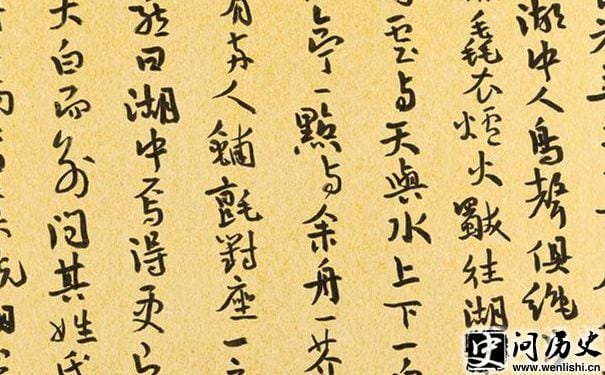 湖中人鳥聲俱絕
毳衣爐火獨往湖
雲与天與水上下一
亭一點与余舟一芥
有兩人鋪氈對座一
曰湖中焉得更
大白而別問其姓氏
问历史
www.wenlishi.cn